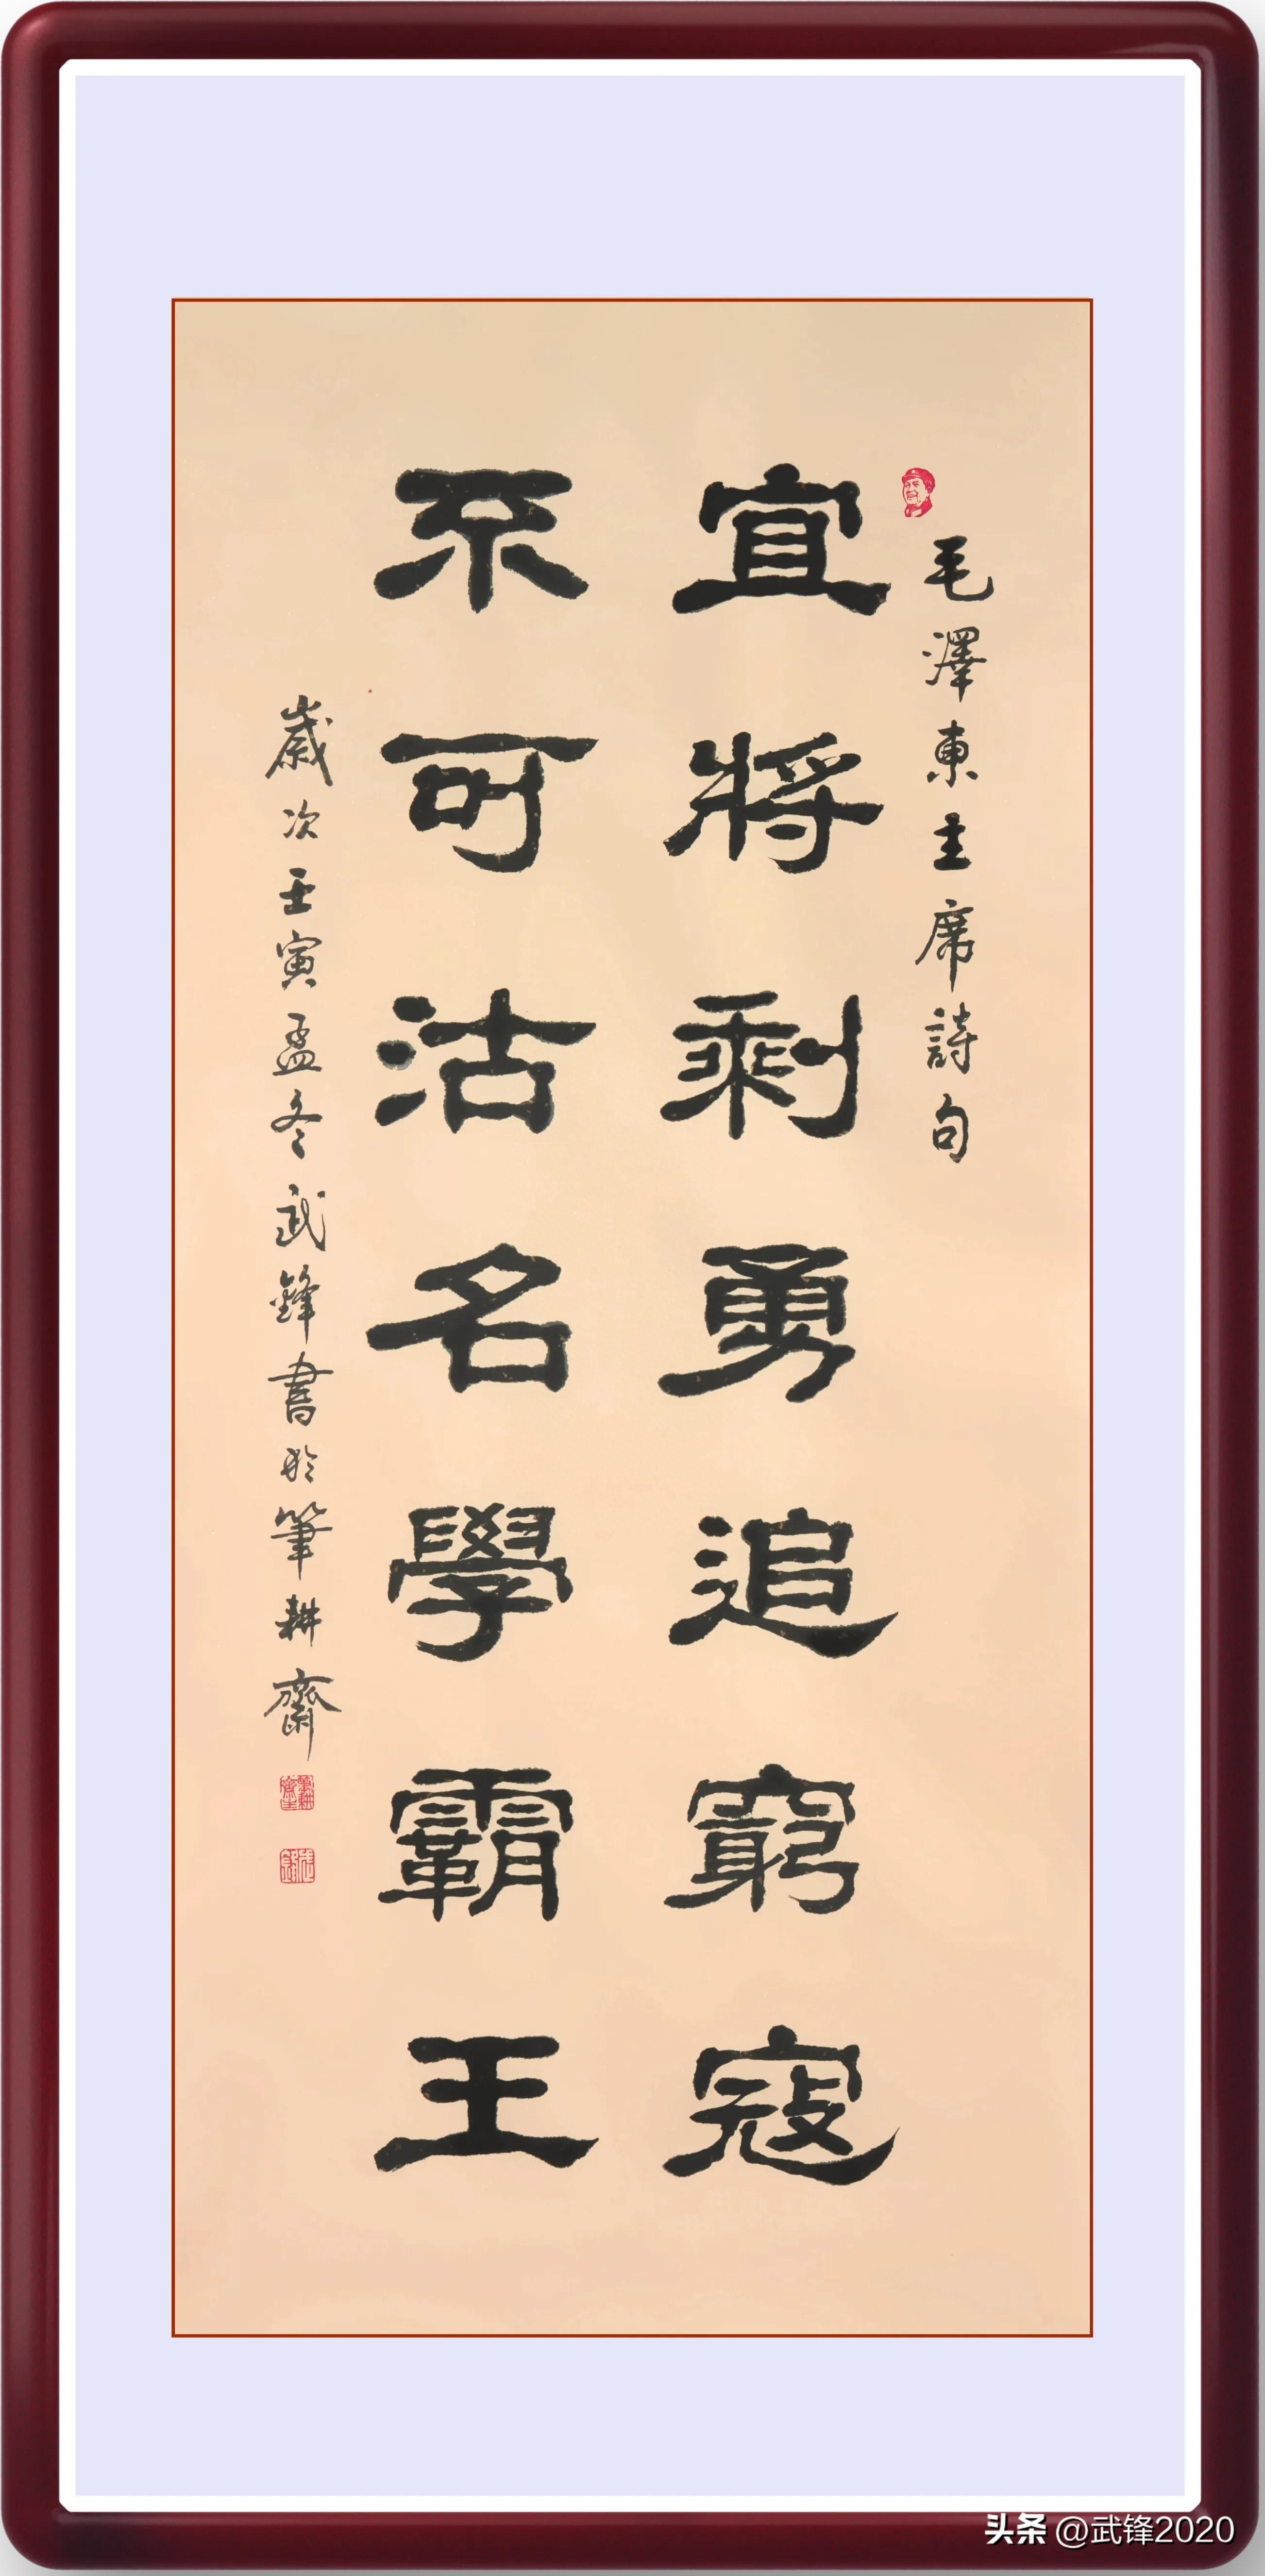 毛澤東主席詩句
宜將剩勇追窮寇
不可沽名學霸王
歲次壬寅孟冬武鋒書於筆耕齋
头条 @武锋2020